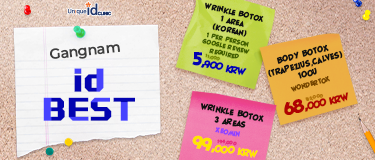 Unique id CLINIC
Gangnam
id
BEST
WRINKLE BOTOX
1 AREA
(KOREAN)
1 PER PERSON
GOOGLE REVIEW
REQUIRED
5,900 KRW
BODY BOTOX
(TRAPEZIUS,CALVES)
100U
WONDERTOX
68,000 KRW
WRINKLE BOTOX
3 AREAS
XEOMIN
99,000 KRW